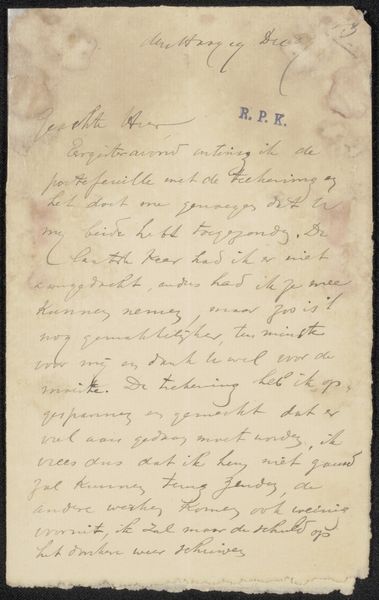 den Haag 19 Dec
R. P. K.
Geachte Heer,
Eergisteravond ontving ik de
portefeuille met de teekening en
het doet me genoegen dat U
mij beide hebt toegezonden. De
laatste keer had ik er niet
aangedacht, anders had ik ze mee
kunnen nemen, maar zoo is 't
nog gemakkelijker, ten minste
voor mij en dank U wel voor de
moeite. De teekening heb ik op-
gespannen en gemerkt dat er
veel aan gedaan moet worden, ik
vrees dus dat ik hem niet gauw
zal kunnen terug zenden, de
andere werken komen ook weinig
vooruit, ik zal maar de schuld op
het donkere weer schuiven